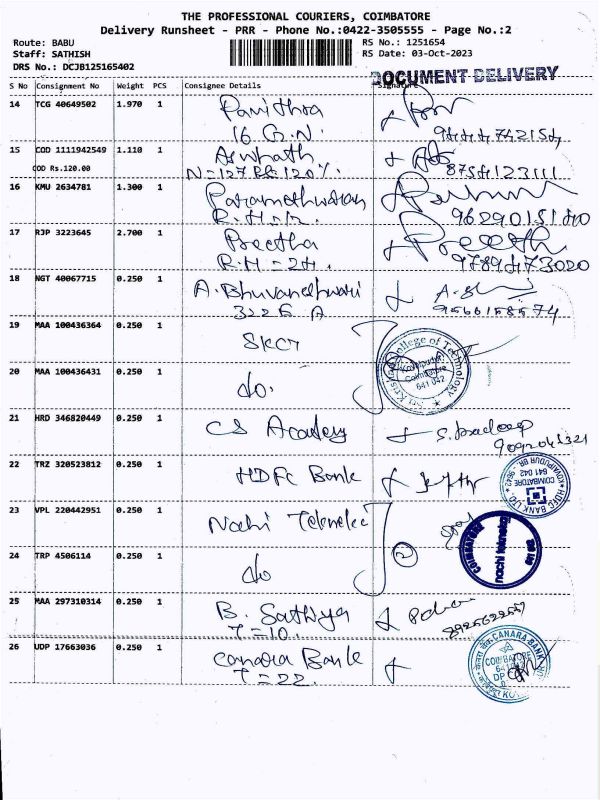 THE PROFESSIONAL COURIERS, COIMBATORE
Delivery Runsheet - PRR - Phone No.:0422-3505555 - Page No.:2
Route: BABU
Staff: SATHISH
DRS No.: DCJB125165402
RS No.: 1251654
RS Date: 03-Oct-2023
DOCUMENT DELIVERY
S No Consignment No Weight PCS Consignee Details Signature
14 TCG 40649502 1.970 1 Pavithra
16 G.N.
15 COD 1111942549 1.110 1 Aswhath
COD Rs.120.00 N=127 Rs.120/.
16 KMU 2634781 1.300 1 Parameshwaran
R.H=
17 RJP 3223645 2.700 1 Preetha Preeth
R.H=24. 9789473020
18 NGT 40067715 0.250 1 A.Bhuvaneshwari
3226 A 9566158574
19 MAA 100436364 0.250 1 SKCT
Sri Krishna College of Technology
Kovaipudur
Coimbatore
641 042
20 MAA 100436431 0.250 1 do.
21 HRD 346820449 0.250 1 CS Academy S.Pradeep
22 TRZ 320523812 0.250 1 HDFC Bank
HDFC BANK LTD.
COIMBATORE
641 042
KOVAIPUDUR BR.
23 VPL 220442951 0.250 1 Nachi Teknelec
COIMBATORE
nachi teknelec
24 TRP 4506114 0.250 1 do 2
25 MAA 297310314 0.250 1 B. Sathiya
T=10.
26 UDP 17663036 0.250 1 Canara Bank
T=22.
CANARA BANK
COIMBATORE